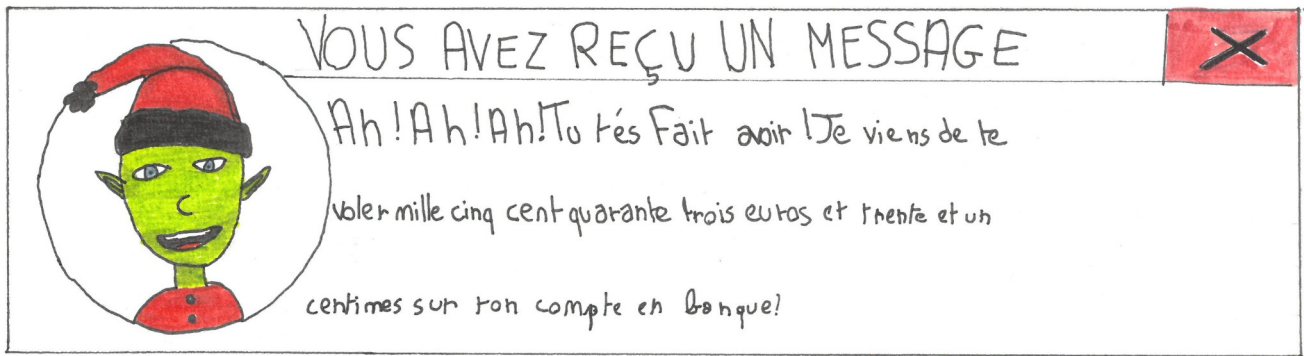 VOUS AVEZ REÇU UN MESSAGE
Ah!Ah!Ah!Tu tés Fait avoir!Je viens de te
voler mille cinq cent quarante trois euros et trente et un
centimes sur ton compte en banque!